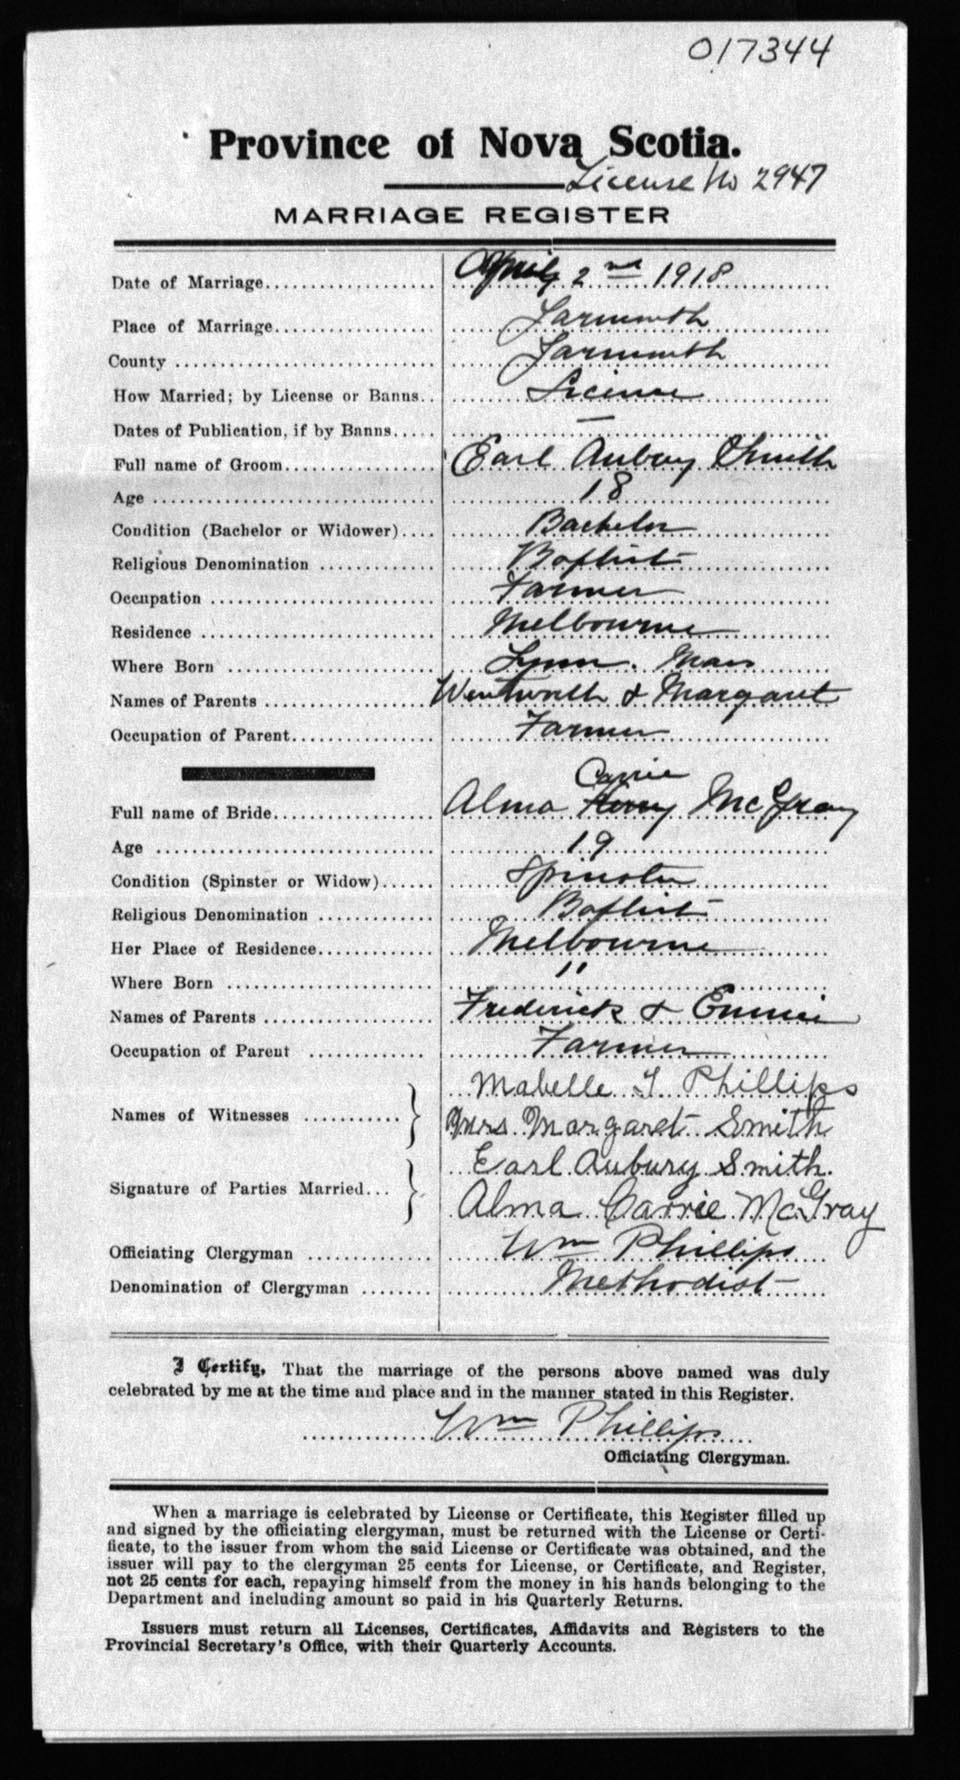 017344
Province of Nova Scotia.
License No 2947
MARRIAGE REGISTER
Date of Marriage.................... April 2nd 1918
Place of Marriage................... Yarmouth
County ............................. Yarmouth
How Married; by License or Banns.. License
Dates of Publication, if by Banns..... —
Full name of Groom.................. Earl Aubrey Smith
Age ................................ 18
Condition (Bachelor or Widower).... Bachelor
Religious Denomination ............. Baptist
Occupation ......................... Farmer
Residence .......................... Melbourne
Where Born ......................... Lynn. Mass
Names of Parents ................... Wentworth & Margaret
Occupation of Parent................ Farmer
Carrie
Full name of Bride.................. Alma McGray
Age ................................ 19
Condition (Spinster or Widow)...... Spinster
Religious Denomination ............. Baptist
Her Place of Residence............. Melbourne
Where Born ......................... "
Names of Parents ................... Frederick & Emmie
Occupation of Parent ............... Farmer
Mabelle Phillips
Names of Witnesses ........... } Mrs. Margaret Smith
Earl Aubury Smith.
Signature of Parties Married... } Alma Carrie McGray
Officiating Clergyman .............. Wm Phillips
Denomination of Clergyman ........ Methodist
I Certify, That the marriage of the persons above named was duly
celebrated by me at the time and place and in the manner stated in this Register.
Wm Phillips
Officiating Clergyman.
When a marriage is celebrated by License or Certificate, this Register filled up
and signed by the officiating clergyman, must be returned with the License or Certi-
ficate, to the issuer from whom the said License or Certificate was obtained, and the
issuer will pay to the clergyman 25 cents for License, or Certificate, and Register,
not 25 cents for each, repaying himself from the money in his hands belonging to the
Department and including amount so paid in his Quarterly Returns.
Issuers must return all Licenses, Certificates, Affidavits and Registers to the
Provincial Secretary's Office, with their Quarterly Accounts.